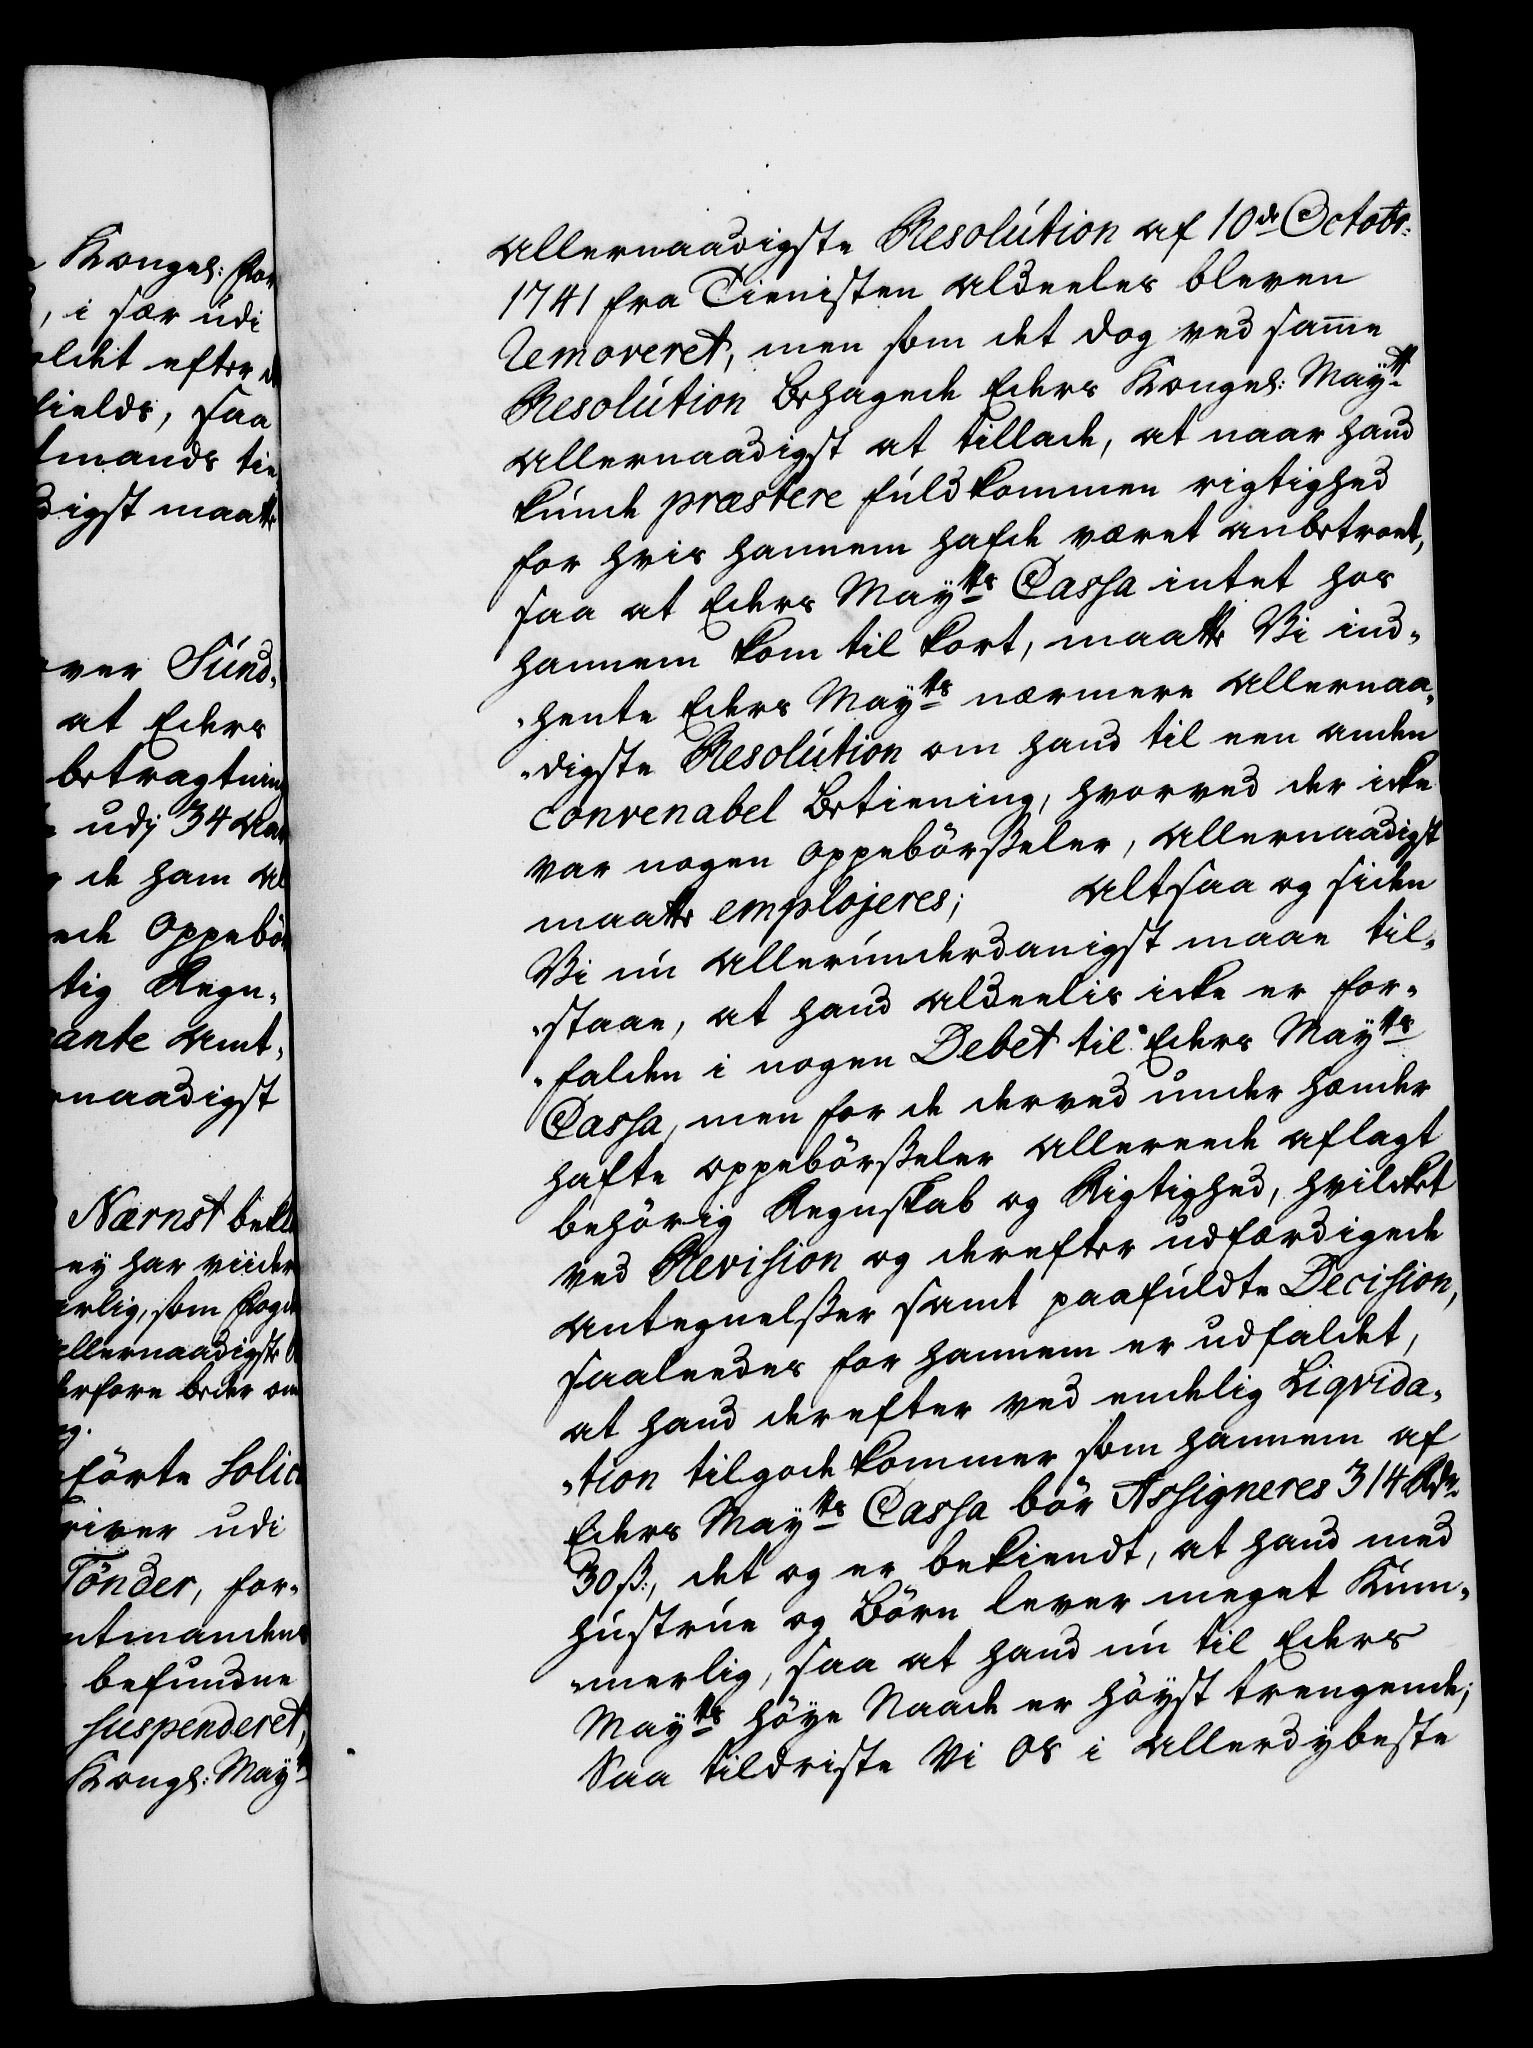 Kongel: For
, i sær udi
oldet efter d
fields, saa
tmands tie
digst maatte
over Sund,,
at Eders
betragtning
udj 34 Aar
de ham Al
ede Oppebör
tig Regn,,
ante Amt,,
rnaadigst
Nærnst bekl
ey har viider
erlig, som Foged
llernaadigste
erfore beder om
förte Solici
river udi
Tönder, for,,
mtmandens
befundne
suspenderet,
Kongl: Maytt
Allernaadigste Resolution af 10de Octobr:
1741 fra Tienisten Aldeeles bleven
Removeret, men som det dog ved samme
Resolution Behagede Eders Kongel: Maytt
Allernaadigst at tillade, at naar hand
kunde præstere fuldkommen rigtighed
for hvis hannem hafde været anbetroet,
saa at Eders Maytts Cassa intet hos
hannem kom til kort, maatte Vi ind,,
,,hente Eders Maytts nærmere Allernaa,,
,,digste Resolution om hand til een anden
convenabel Betiening, hvorved der icke
var nogen Oppebörsseler, Allernaadigst
maatte emplojeres; Altsaa og siden
Vi nu Allerunderdanigst maae til,,
,,staae, at hand Aldeelis icke er for,,
,,falden i nogen Debet til Eders Maytts
Cassa, men for de derved under hænder
hafte Oppebörsseler Allereede aflagt
behörig Regnskab og Rigtighed, hvilcket
ved Revision og derefter udfærdigede
Antegnelsser samt paafuldte Decision,
saaleedes for hannem er udfaldet,
at hand derefter ved endelig Liqvida,,
,,tion tilgode kommer som hannem af
Eders Maytts Cassa bör Assigneres 314 Rdr.
30 ß:, det og er bekiendt, at hand med
hustrue og Börn lever meget Kum,,
,,merlig, saa at hand nu til Eders
Maytts höye Naade er höyst trengende;
Saa tildriste Vi Os i Allerdybeste